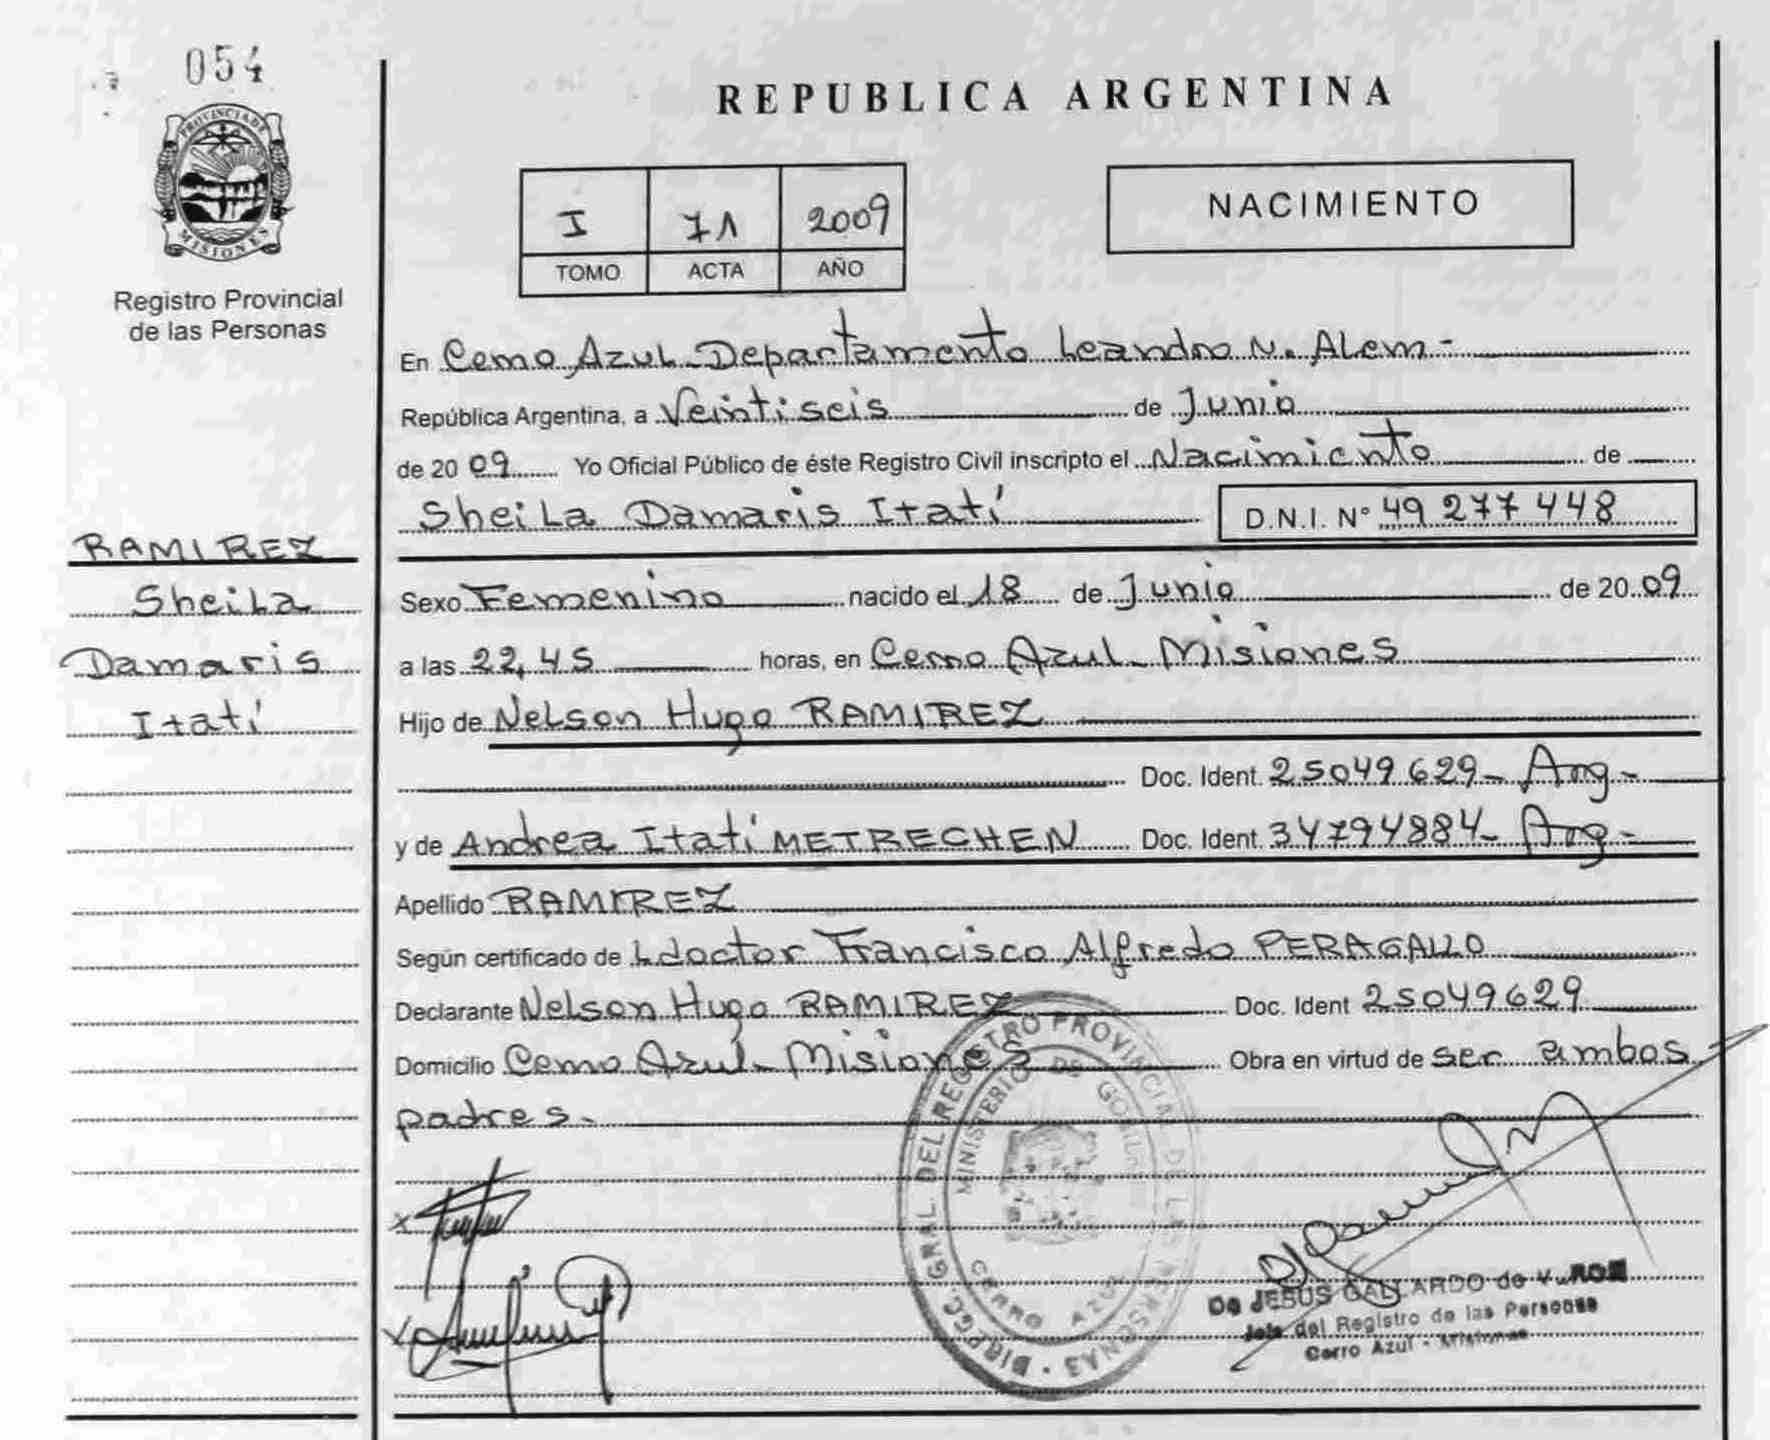 054
PROVINCIA DE
MISIONES
Registro Provincial
de las Personas
REPUBLICA ARGENTINA
I 71 2009
TOMO ACTA AÑO
NACIMIENTO
En Cerro Azul - Departamento Leandro N. Alem -
República Argentina, a Veintiseis de Junio
de 2009 Yo Oficial Público de éste Registro Civil inscripto el Nacimiento de
Sheila Damaris Itatí D.N.I. N° 49 277 448
RAMIREZ
Sheila
Damaris
Itatí
Sexo Femenino nacido el 18 de Junio de 2009
a las 22,45 horas, en Cerro Azul - Misiones
Hijo de Nelson Hugo RAMIREZ
Doc. Ident. 25049629 - Arg -
y de Andrea Itatí METRECHEN Doc. Ident. 34794884 - Arg -
Apellido RAMIREZ
Según certificado de Ldoctor Francisco Alfredo PERAGALLO
Declarante Nelson Hugo RAMIREZ Doc. Ident 25049629
Domicilio Cerro Azul - Misiones Obra en virtud de ser ambos
padres -
DIRECC. GRAL. DEL REGISTRO PROVINCIAL DE LAS PERSONAS
MINISTERIO DE GOBIERNO
CERRO AZUL
De JESUS GALLARDO de
Jefe del Registro de las Personas
Cerro Azul - Misiones